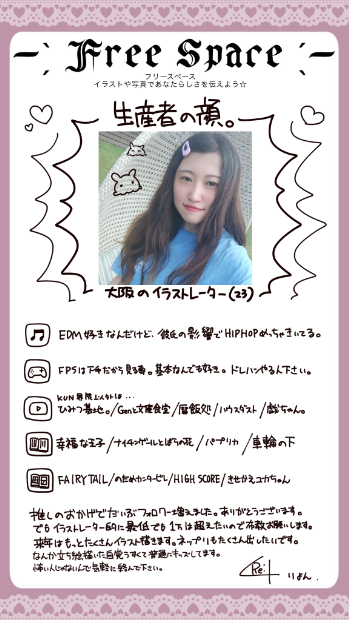 Free Space
フリースペース
イラストや写真であなたらしさを伝えよう☆
生産者の顔。
大阪のイラストレーター(23)
EDM好きなんだけど、彼氏の影響でHIPHOPめっちゃきいてる。
FPSは下手だから見る専。基本なんでも好き。ドレハンやる人下さい。
KUN 以外は...
ひみつ基地。/Genと文建食堂/暦飯処/ハウスダスト/戯ちゃん。
幸福な王子/ナイチンゲールとばらの花/パプリカ/車輪の下
FAIRY TAIL/のだめカンタービレ/HIGH SCORE/きせかえユカちゃん
推しのおかげでだいぶフォロワー増えました。ありがとうございます。
でもイラストレーター的に最低でも1万は超えたいので布教お願いします。
来年はもっとたくさんイラスト描きます。ネップリもたくさん出したいです。
なんか立ち絵描いた自覚うすくて普通にキッズしてます。
怖い人じゃないんで気軽に絡んで下さい。
りょん.